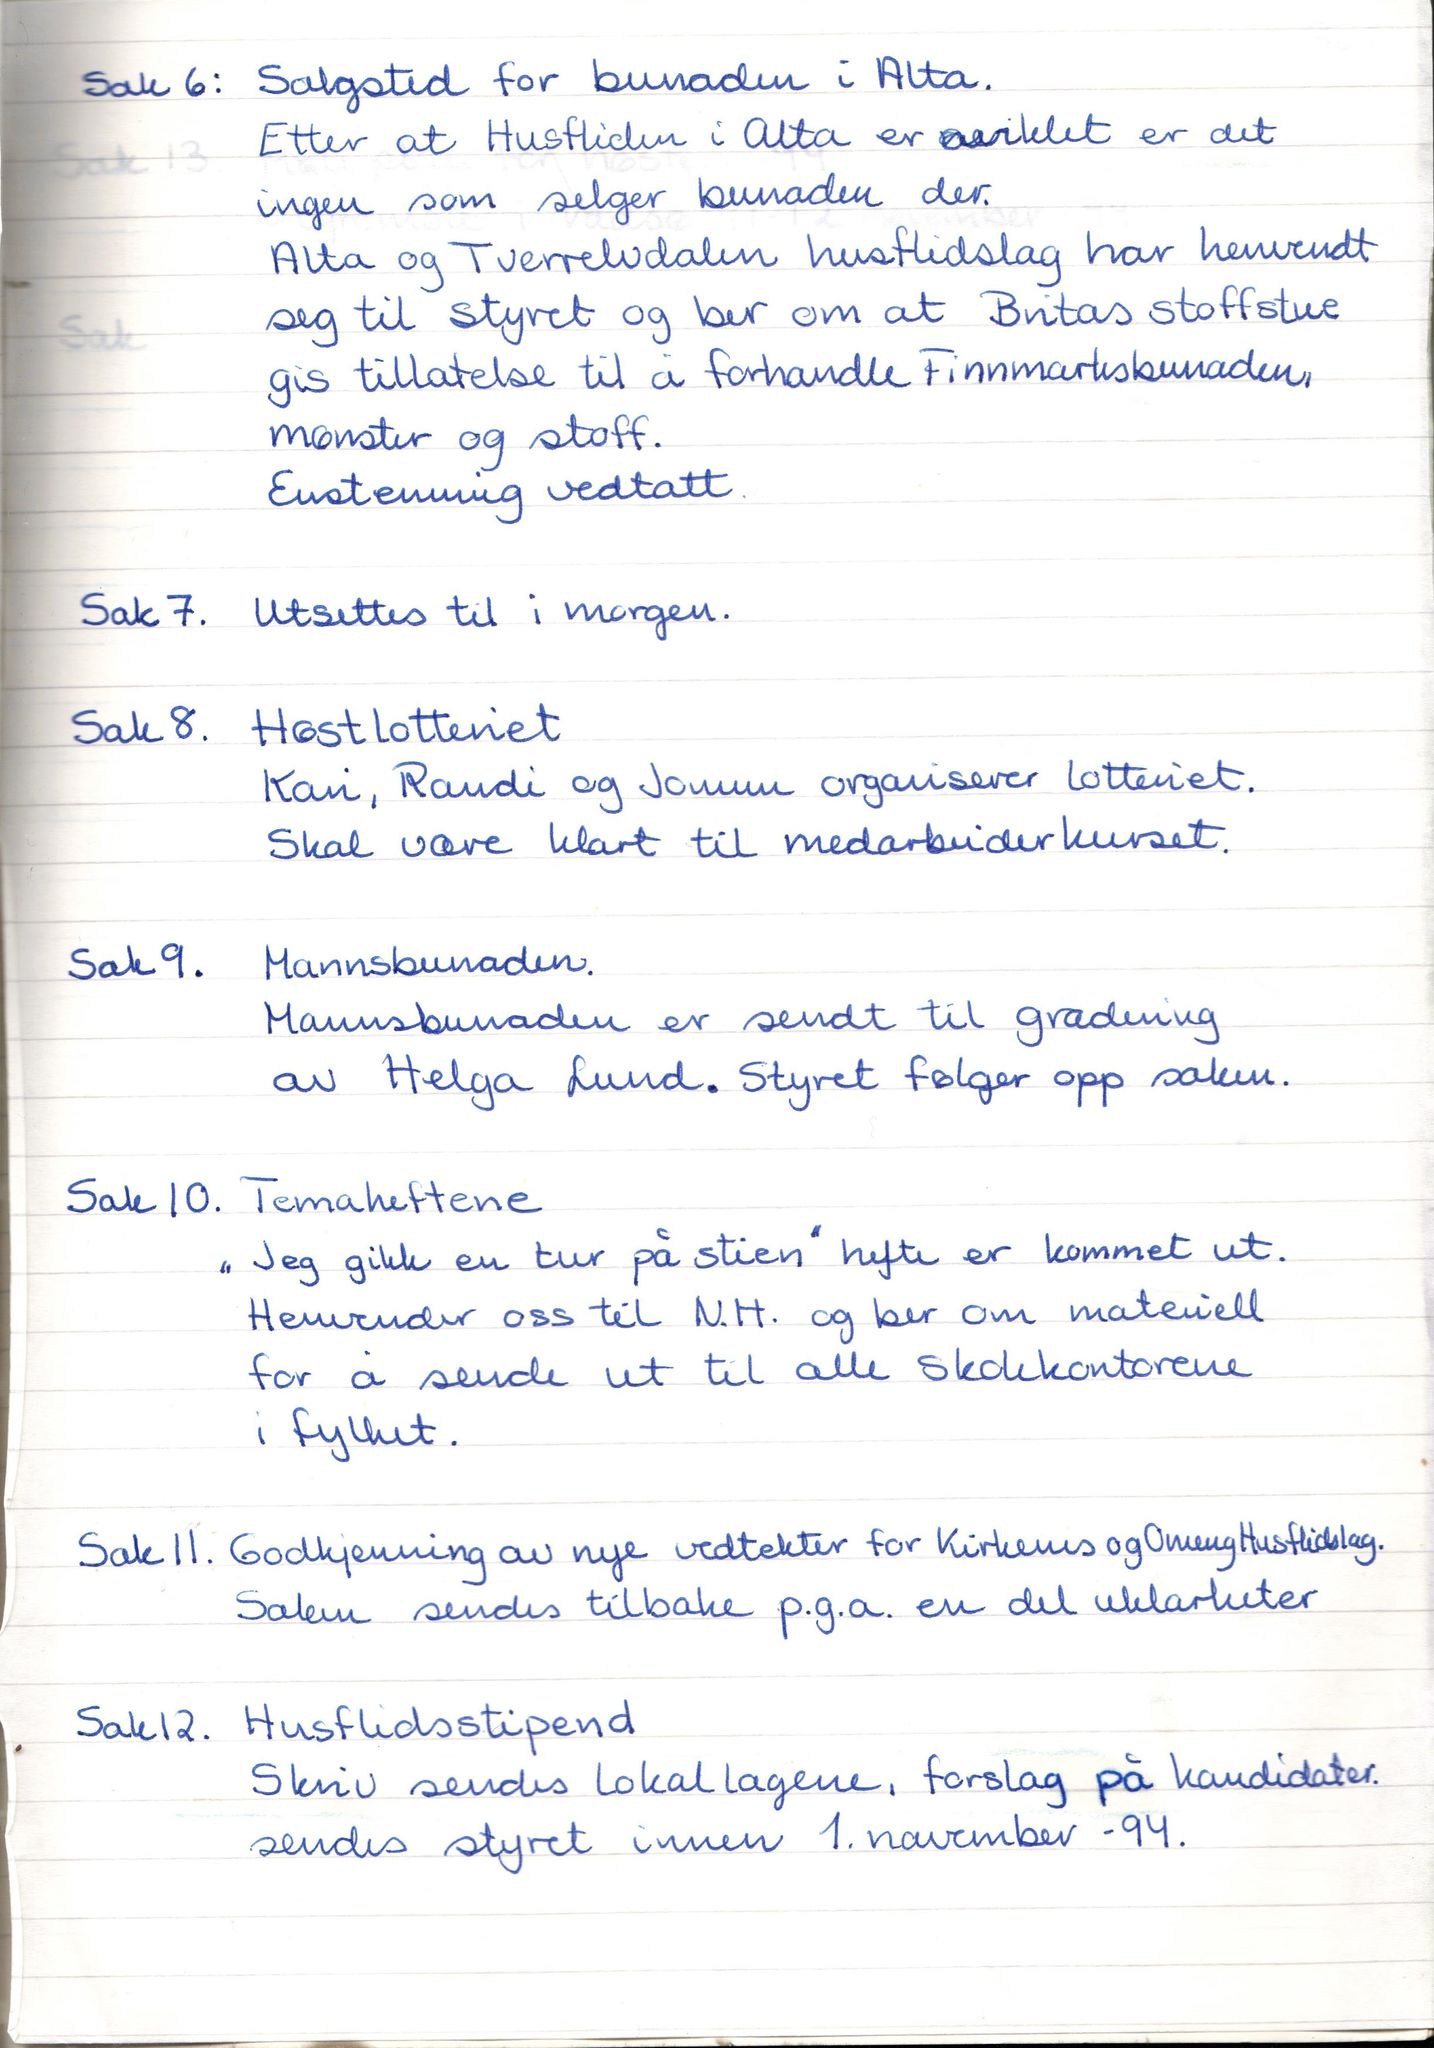 Sak 6: Salgsted for bunaden i Alta.
Etter at Husfliden i Alta er avviklet er det
ingen som selger bunaden der.
Alta og Tverrelvdalen husflidslag har henvendt
seg til styret og ber om at Britas stoffstue
gis tillatelse til å forhandle Finnmarksbunaden,
mønster og stoff.
Enstemmig vedtatt.
Sak 7. Utsettes til i morgen.
Sak 8. Høstlotteriet
Kari, Randi og Jorunn organiserer lotteriet.
Skal være klart til medarbeiderkurset.
Sak 9. Mannsbunaden.
Mannsbunaden er sendt til gradering
av Helga Lund. Styret følger opp saken.
Sak 10. Temaheftene
"Jeg gikk en tur på stien" hefte er kommet ut.
Henvender oss til N.H. og ber om materiell
for å sende ut til alle skolekontorene
i fylket.
Sak 11. Godkjenning av nye vedtekter for Kirkenes og Omeng Husflidslag.
Saken sendes tilbake p.g.a. en del uklarheter
Sak 12. Husflidsstipend
Skriv sendes lokallagene, forslag på kandidater.
sendes styret innen 1. november -94.